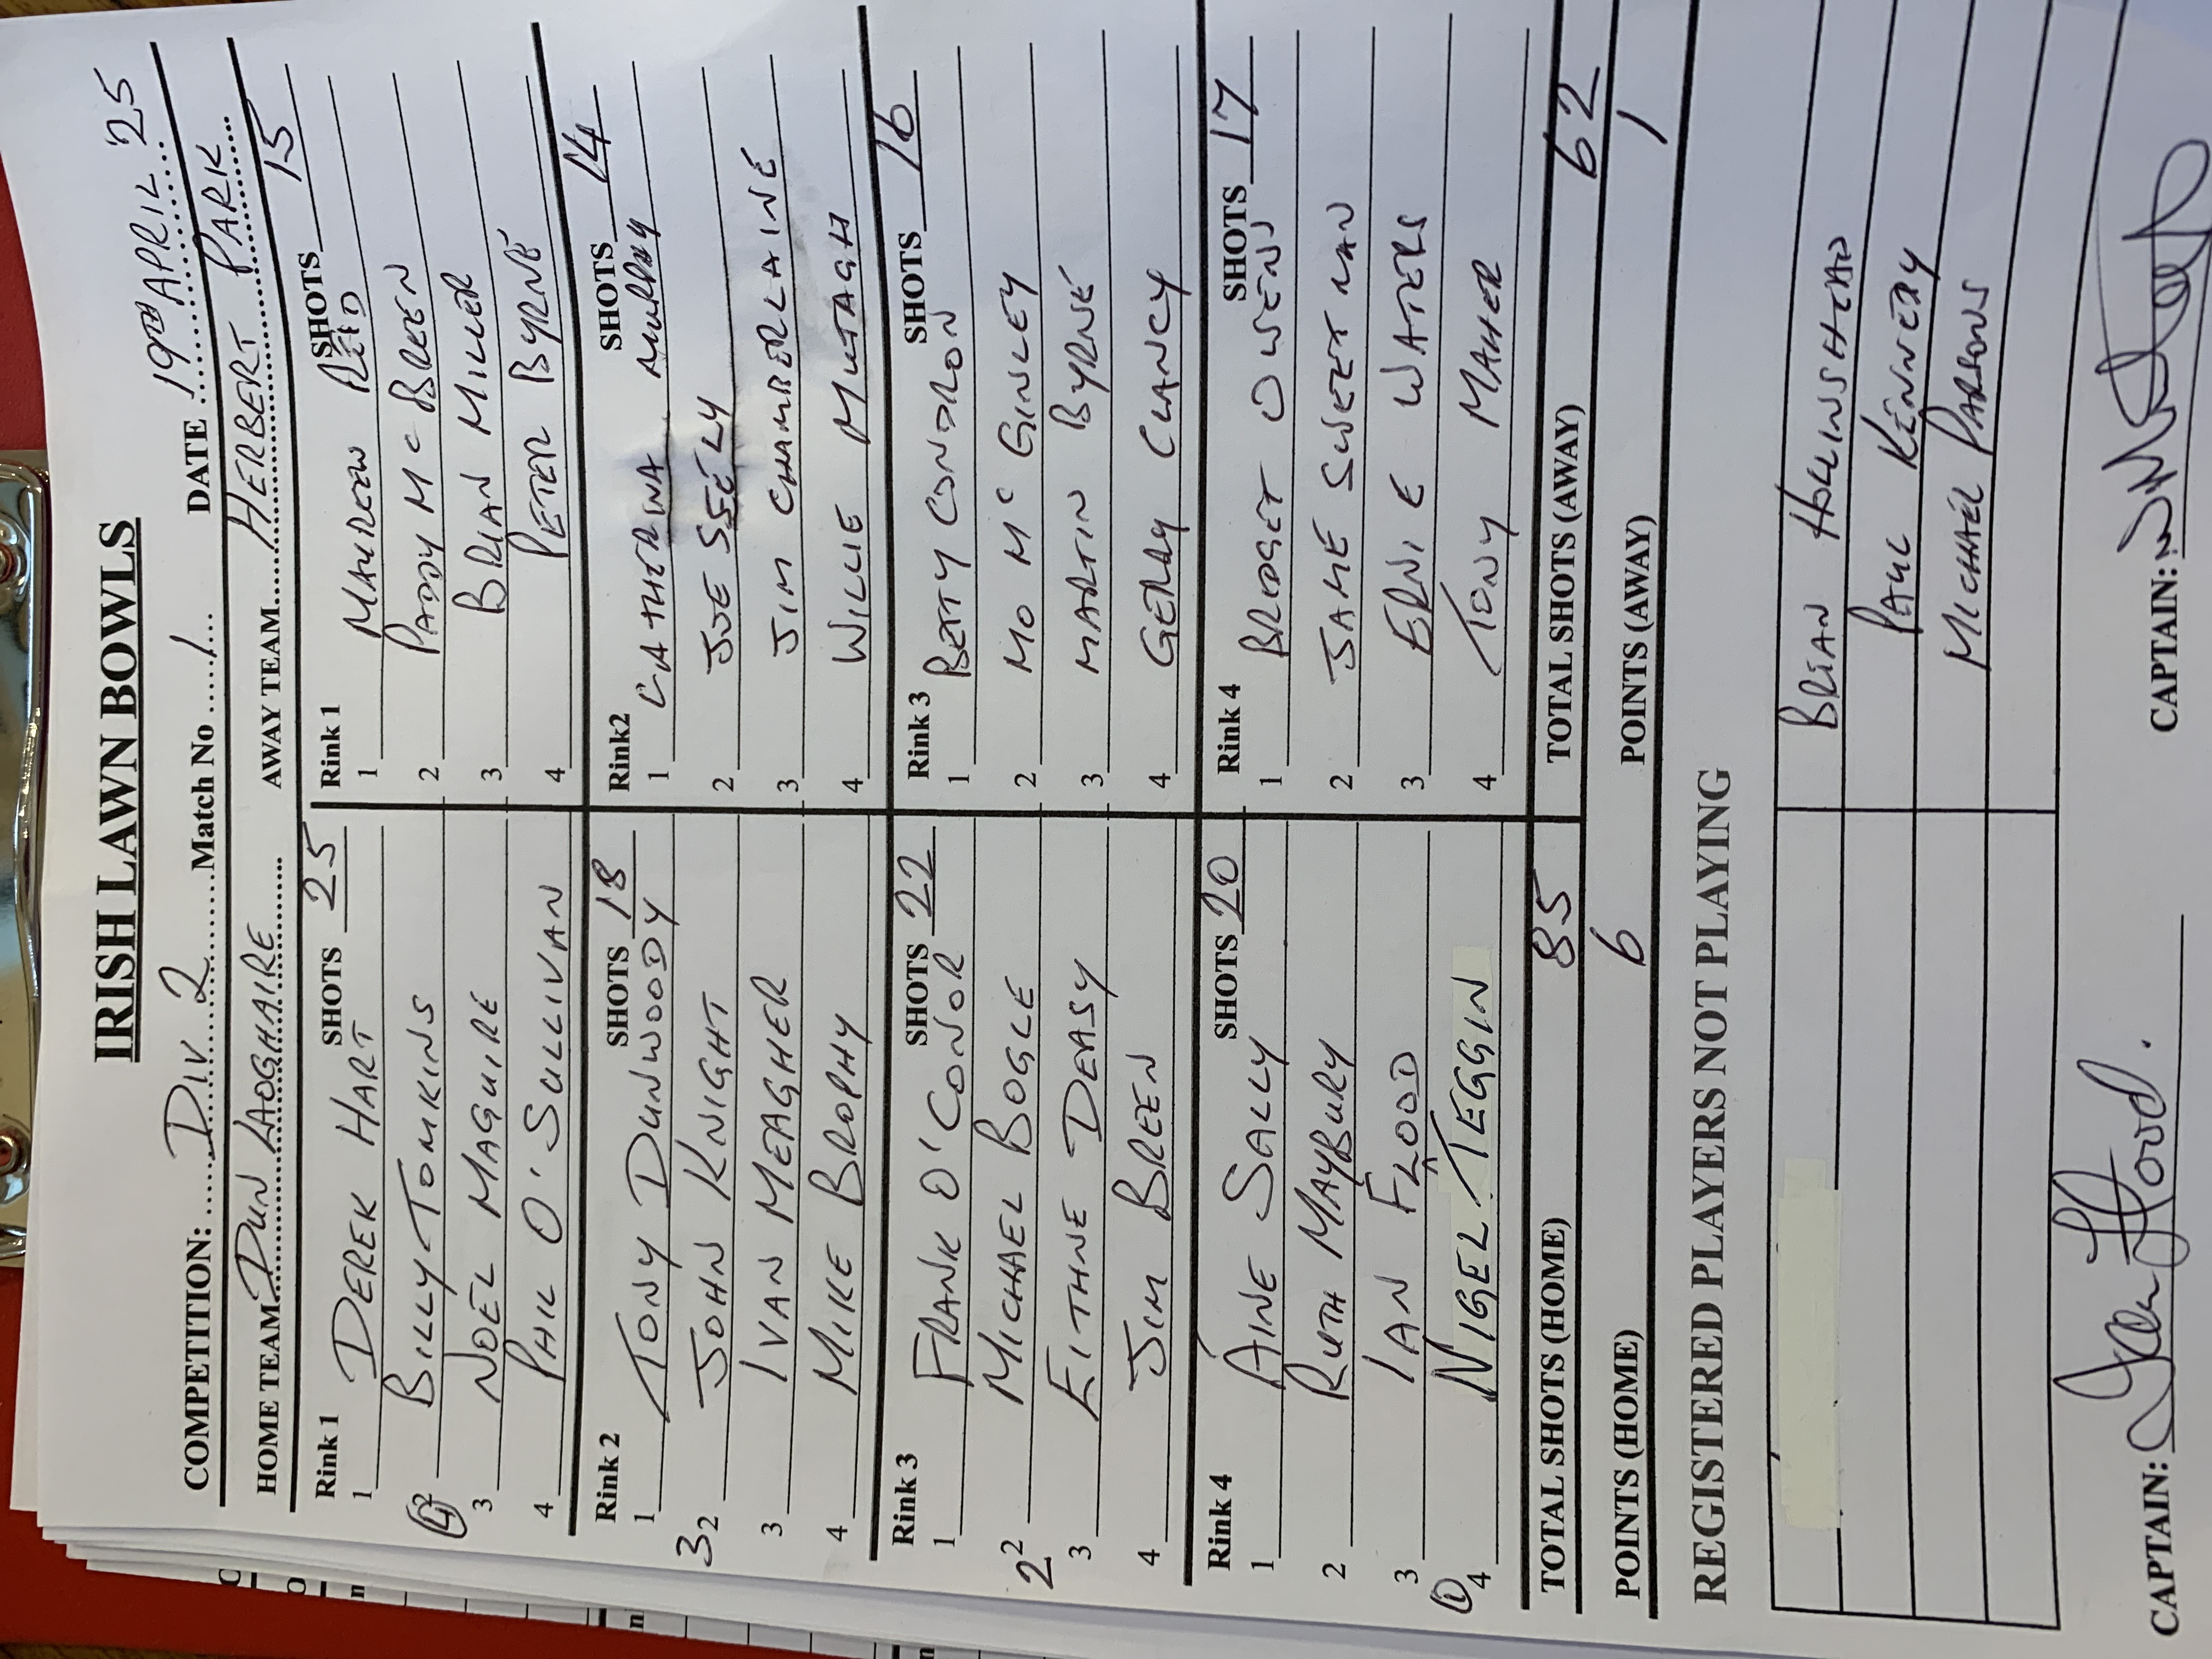 IRISH LAWN BOWLS
COMPETITION: DIV 2 Match No 1 DATE 19TH APRIL '25
HOME TEAM DUN LAOGHAIRE AWAY TEAM HERBERT PARK
Rink 1 SHOTS 25 Rink 1 SHOTS 15
1 DEREK HART 1 MAUREEN REID
④ 2 BILLY TOMKINS 2 PADDY McBREEN
3 NOEL MAGUIRE 3 BRIAN MILLER
4 PHIL O'SULLIVAN 4 PETER BYRNE
Rink 2 SHOTS 18 Rink2 SHOTS 14
1 TONY DUNWOODY 1 CATHERINA MURRAY
3 2 JOHN KNIGHT 2 JOE SEELY
3 IVAN MEAGHER 3 JIM CHAMBERLAINE
4 MIKE BROPHY 4 WILLIE MUTAGH
Rink 3 SHOTS 22 Rink 3 SHOTS 16
1 FRANK O'CONOR 1 BETTY CONDRON
2 2 MICHAEL BOGLE 2 MO McGINLEY
3 EITHNE DEASY 3 MARTIN BYRNE
4 JIM BREEN 4 GERRY CLANCY
Rink 4 SHOTS 20 Rink 4 SHOTS 17
1 ÁINE SALLY 1 BRIDGET OWENS
2 RUTH MAYBURY 2 JANE SWEETMAN
3 IAN FLOOD 3 ERNIE WATERS
① 4 NIGEL TEGGIN 4 TONY MAHER
TOTAL SHOTS (HOME) 85 TOTAL SHOTS (AWAY) 62
POINTS (HOME) 6 POINTS (AWAY) 1
REGISTERED PLAYERS NOT PLAYING
BRIAN HOLLINSHEAD
PAUL KENNEDY
MICHAEL PARSONS
CAPTAIN: Ian Flood. CAPTAIN: